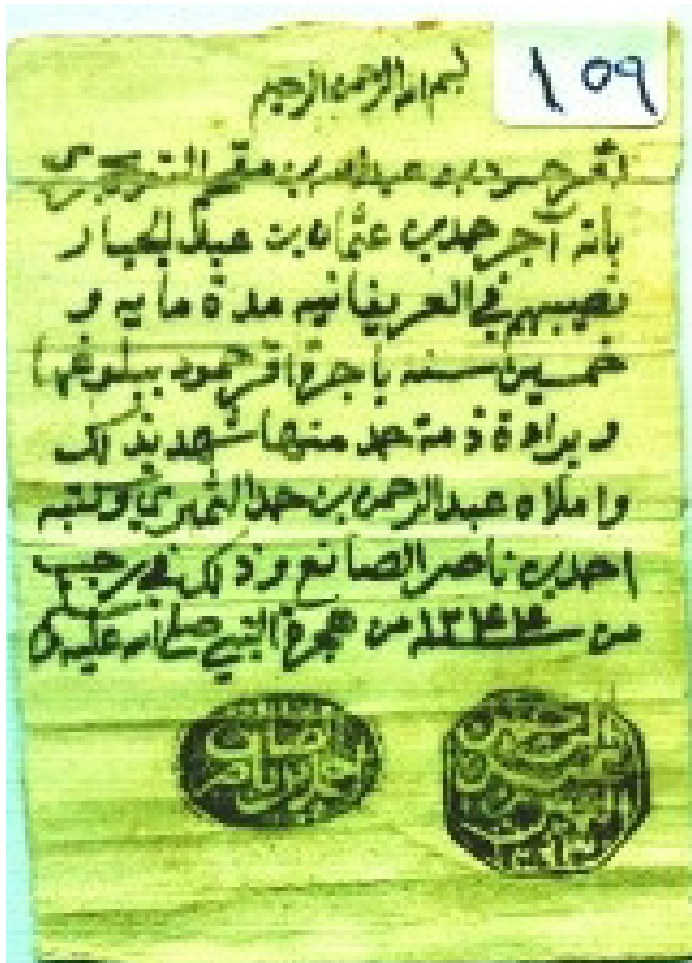 ١٥٩
بسم الله الرحمن الرحيم
اقر حمود بن عبدالله بن مقحم التويجري
بانه آجر حمد بن عثمان بن عبدالجبار
نصيبهم في العريفانيه مدة مايه و
خمسين سنه باجرة اقر حمود ببلوغها
وبراءة ذمة حمد منها شهد بذلك
واملاه عبدالرحمن بن حمد الثميري وكتبه
احمد بن ناصر الصانع وذلك في رجب
من ١٣٤٤ من هجرة النبي صلى الله عليه